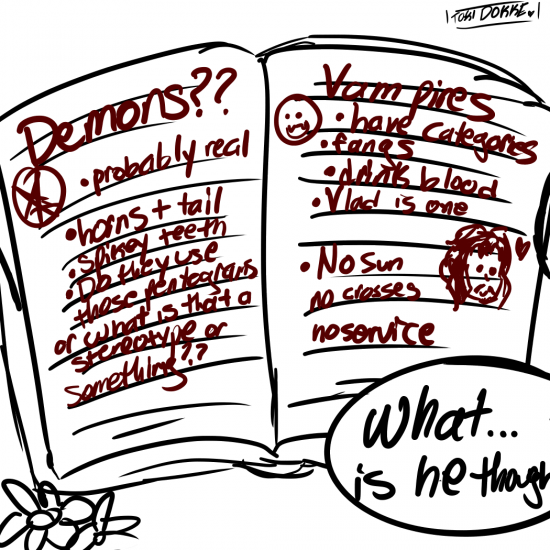 TOKI DOKKE
Demons??
• probably real
• horns + tail
• spikey teeth
• Do they use
those pentagrams
or what is that a
stereotype or
something??
Vampires
• have categories
• fangs
• drink blood
• Vlad is one
• No sun
no crosses
no service
What...
is he though